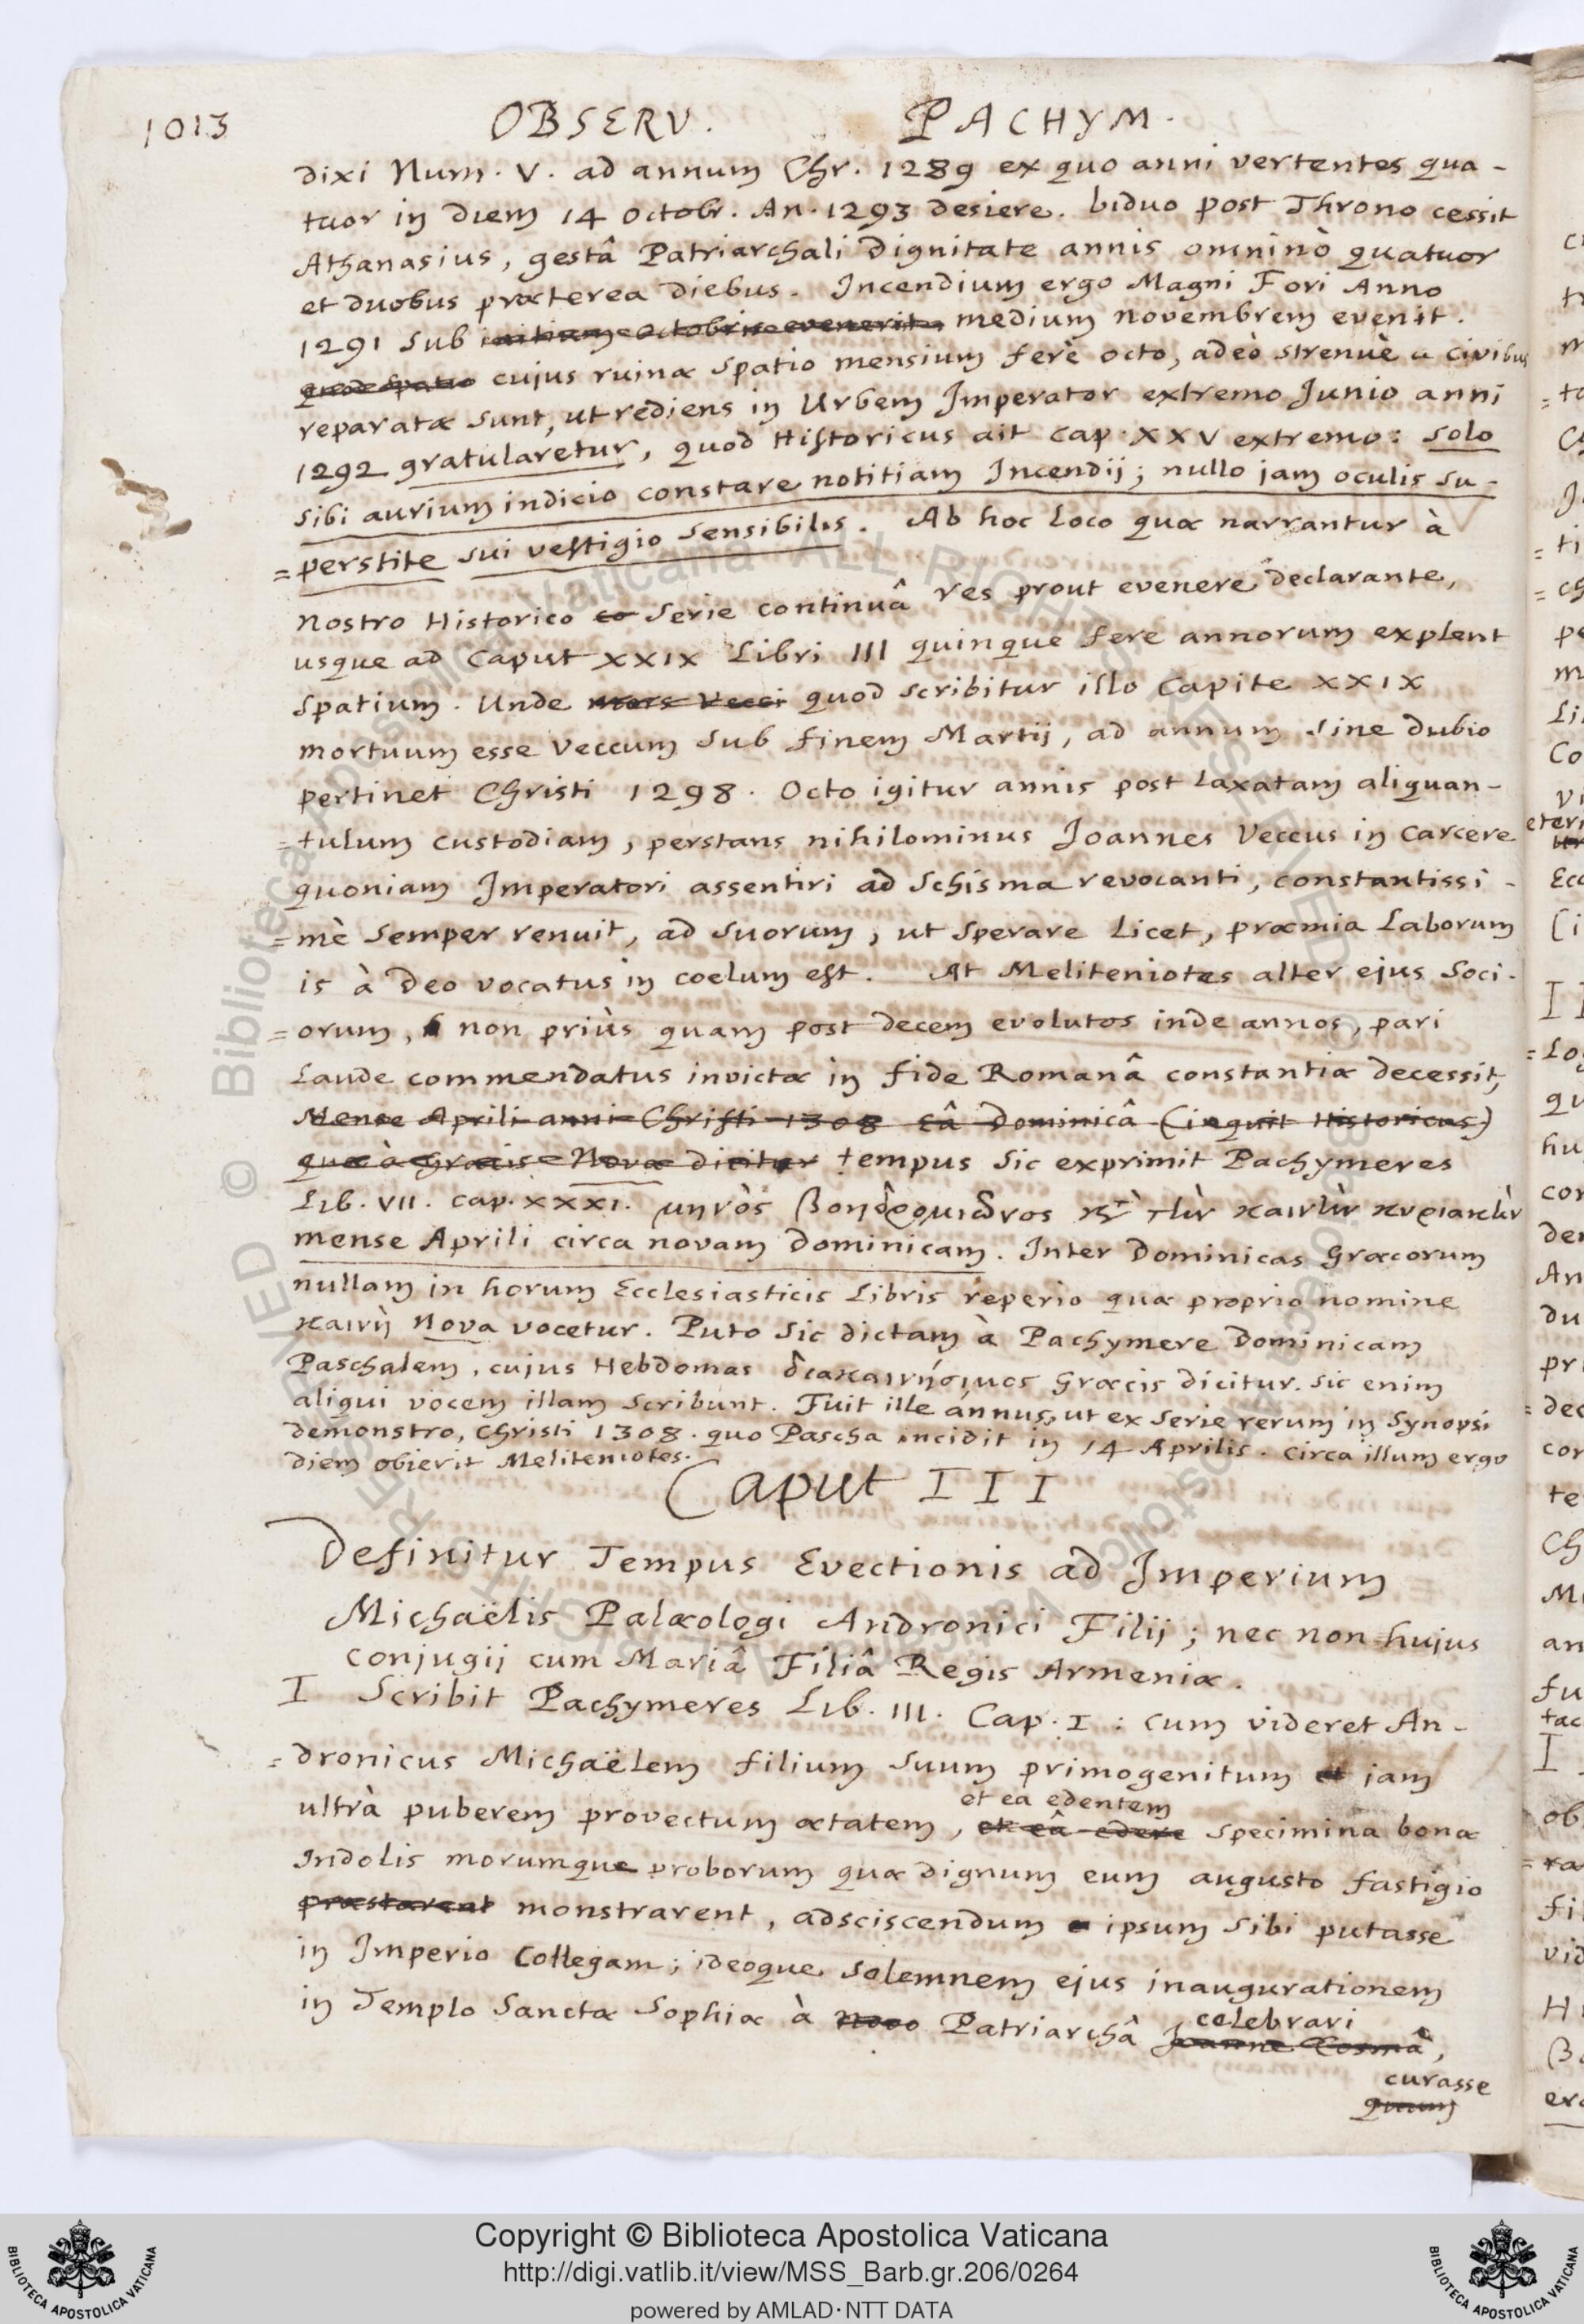 1013 OBSERV. PACHYM.
dixi Num. V. ad annum Chr. 1289 ex quo anni vertentes qua-
tuor in diem 14 Octobr. An. 1293 desiere. biduo post Throno cessit
Athanasius, gestâ Patriarchali dignitate annis omninò quatuor
et duobus præterea diebus. Incendium ergo Magni Fori Anno
1291 sub initium Octobris evenerit medium novembrem evenit.
quod spatio cujus ruinæ spatio mensium ferè octo, adeò strenuè a civibus
reparatæ sunt, ut rediens in Urbem Imperator extremo Junio anni
1292 gratularetur, quod Historicus ait cap. XXV extremo: solo
sibi aurium indicio constare notitiam Incendij; nullo jam oculis su-
=perstite sui vestigio sensibilis. Ab hoc loco quæ narrantur à
nostro Historico eo serie continuâ res prout evenere declarante,
usque ad Caput XXIX Libri III quinque fere annorum explent
spatium. Unde mors Vecci quod scribitur illo Capite XXIX
mortuum esse Veccum sub finem Martij, ad annum sine dubio
pertinet Christi 1298. Octo igitur annis post laxatam aliquan-
=tulum custodiam, perstans nihilominus Joannes Veccus in carcere
quoniam Imperatori assentiri ad Schisma revocanti, constantissi-
=mè semper renuit, ad suorum, ut sperare licet, præmia Laborum
is à Deo vocatus in coelum est. At Meliteniotes alter ejus Soci-
=orum, non priùs quam post decem evolutos inde annos, pari
Laude commendatus invictæ in fide Romanâ constantiæ decessit,
Mense Aprili anni Christi 1308 Eâ Dominicâ (inquit Historicus)
quæ à Græcis Nova dicitur tempus sic exprimit Pachymeres
Lib. VII. cap. XXXI. μηνὸς βοηδρομιῶνος κτ̀ τὴν καινὴν κυριακὴν
mense Aprili circa novam dominicam. Inter Dominicas Græcorum
nullam in horum Ecclesiasticis Libris reperio quæ proprio nomine
καινὴ Nova vocetur. Puto sic dictam à Pachymere Dominicam
Paschalem, cujus Hebdomas διακαινήσιμος Græcis dicitur. sic enim
aliqui vocem illam scribunt. Fuit ille annus, ut ex serie rerum in Synopsi
demonstro, Christi 1308. quo Pascha incidit in 14 Aprilis. circa illum ergo
diem obierit Meliteniotes.
Caput III
Definitur Tempus Evectionis ad Imperium
Michaëlis Palæologi Andronici Filij; nec non hujus
conjugij cum Mariâ Filiâ Regis Armeniæ.
I Scribit Pachymeres Lib. III. Cap. I: cum videret An-
=dronicus Michaëlem filium suum primogenitum et jam
et ea edentem
ultrà puberem provectum ætatem, et eâ edere specimina bonæ
Indolis morumque proborum quæ dignum eum augusto fastigio
præstarent monstrarent, adsciscendum ipsum sibi putasse
in Imperio Collegam; ideoque solemnem ejus inaugurationem
celebrari
in Templo Sanctæ Sophiæ à novo Patriarchâ Joanne Cosmâ,
curasse
quum
Copyright © Biblioteca Apostolica Vaticana
http://digi.vatlib.it/view/MSS_Barb.gr.206/0264
powered by AMLAD·NTT DATA
BIBLIOTECA APOSTOLICA VATICANA
BIBLIOTECA APOSTOLICA VATICANA